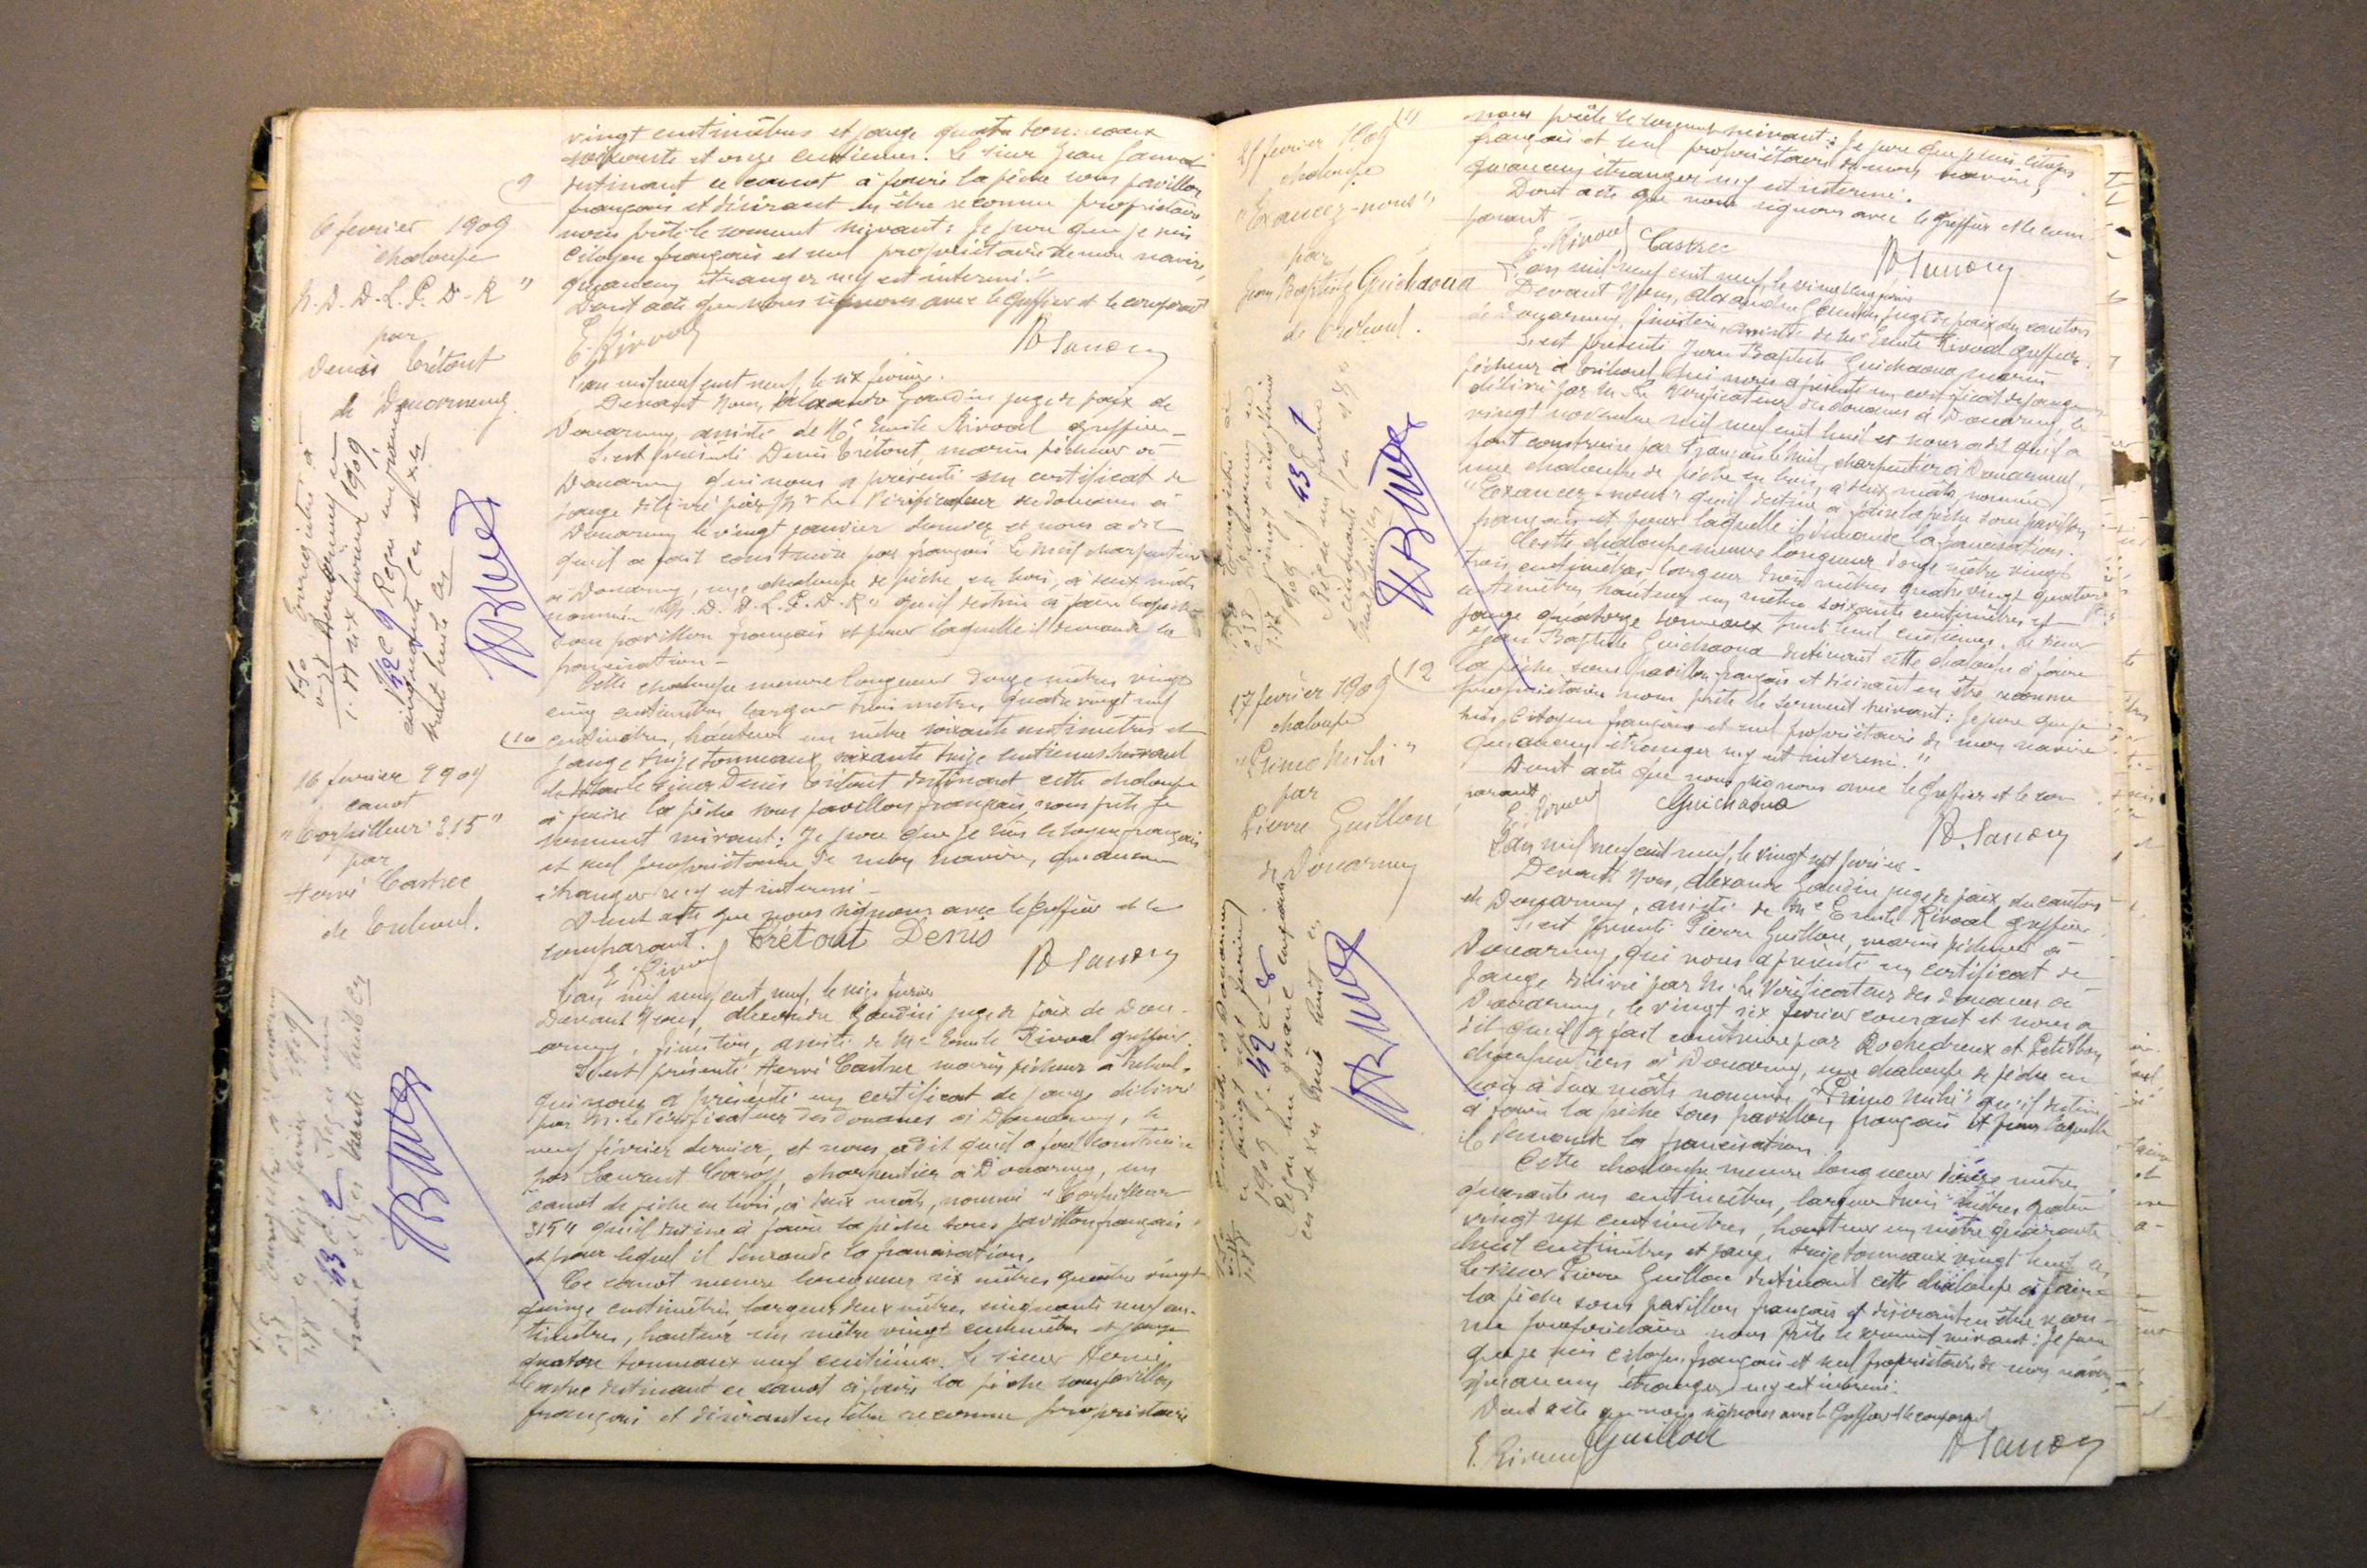 vingt centimètres et jauge quatre tonneaux
soixante et onze centièmes. Le sieur Jean
destinant ce canot à faire la pêche sous pavillon
français et désirant en être reconnu propriétaire
nous prête le serment suivant : Je jure que je suis
citoyen français et seul propriétaire de mon navire,
qu'aucun étranger n'y est intéressé."
Dont acte que nous signons avec le Greffier et le comparant
E. Rivoal
9
6 février 1909
chaloupe
N.D.D.L.P.D.R "
par
Denis Trétout
de Douarnenez
L'an mil neuf cent neuf, le six février.
Devant Nous, Alexandre Gaudin juge de paix de
Douarnenez, assisté de Me Emile Rivoal greffier
S'est présenté Denis Trétout, marin pêcheur à
Douarnenez qui nous a présenté un certificat de
jauge délivré par Mr Le Vérificateur des Douanes à
Douarnenez le vingt janvier dernier et nous a dit
qu'il a fait construire par François Le Meil charpentier
à Douarnenez, une chaloupe de pêche, en bois, à deux mâts
nommée "N.D.D.L.P.D.R" qu'il destine à faire la pêche
sous pavillon français et pour laquelle il demande la
francisation -
Cette chaloupe mesure longueur douze mètres vingt
cinq centimètres largeur trois mètres quatre vingt neuf
centimètres, hauteur un mètre soixante centimètres et
jauge treize tonneaux soixante treize centièmes
Le sieur Denis Trétout destinant cette chaloupe
à faire la pêche sous pavillon français, nous prête le
serment suivant : Je jure que je suis citoyen français
et seul propriétaire de mon navire, qu'aucun
étranger n'y est intéressé -
Dont acte que nous signons avec le Greffier et le
comparant. Trétout Denis
E. Rivoal
Enregistré à
Douarnenez le
six février 1909
42 C 9 Reçu un franc
cinquante
trente huit
10
16 février 1909
canot
"Torpilleur 315"
par
Hervé Castrec
de Tréboul.
L'an mil neuf cent neuf, le seize février
Devant Nous, Alexandre Gaudin juge de paix de Douar-
nenez, Finistère, assisté de Me Emile Rivoal greffier.
S'est présenté Hervé Castrec marin pêcheur à Tréboul,
qui nous a présenté un certificat de jauge délivré
par M. le Vérificateur des Douanes à Douarnenez, le
neuf février dernier, et nous a dit qu'il a fait construire
par Laurent charpentier à Douarnenez, un
canot de pêche en bois, à deux mâts, nommé "Torpilleur
315" qu'il destine à faire la pêche sous pavillon français
et pour lequel il demande la francisation.
Ce canot mesure longueur six mètres quatre vingt
quinze centimètres largeur deux mètres cinquante neuf cen-
timètres, hauteur un mètre vingt centimètres et jauge
quatre tonneaux neuf centièmes. Le sieur Hervé
Castrec destinant ce canot à faire la pêche sous pavillon
français et désirant en être reconnu propriétaire
Enregistré à Douarnenez
le seize février 1909
43 C 2 Reçu un
franc
trente huit
nous prête le serment suivant : Je jure que je suis citoyen
français et seul propriétaire de mon navire,
qu'aucun étranger n'y est intéressé.
Dont acte que nous signons avec le Greffier et le com-
parant
E. Rivoal Castrec
11
février 1909
chaloupe
"Exaucez-nous"
par
Jean Baptiste Guichaoua
de Tréboul.
L'an mil neuf cent neuf, le vingt février
Devant Nous, Alexandre Gaudin, juge de paix du canton
de Douarnenez, Finistère, assisté de Me Emile Rivoal greffier.
S'est présenté Jean Baptiste Guichaoua, marin
pêcheur à Tréboul qui nous a présenté un certificat de jauge
délivré par M. Le Vérificateur des douanes à Douarnenez, le
vingt novembre mil neuf cent huit et nous a dit qu'il a
fait construire par François Le Meil, charpentier à Douarnenez,
une chaloupe de pêche en bois, à deux mâts, nommée
"Exaucez-nous" qu'il destine à faire la pêche sous pavillon
français et pour laquelle il demande la francisation.
Cette chaloupe mesure longueur douze mètres vingt
trois centimètres largeur trois mètres quatre vingt quatorze
centimètres hauteur un mètre soixante centimètres et
jauge quatorze tonneaux trente huit centièmes. Le sieur
Jean Baptiste Guichaoua destinant cette chaloupe à faire
la pêche sous pavillon français et désirant en être reconnu
propriétaire nous prête le serment suivant : Je jure que je
suis citoyen français et seul propriétaire de mon navire
qu'aucun étranger n'y est intéressé."
Dont acte que nous signons avec le Greffier et le com-
parant
E. Rivoal Guichaoua
Enregistré à
Douarnenez le
vingt février
1909 43 C 1
Reçu un franc
cinquante
12
27 février 1909
chaloupe
"Primo Mihi"
par
Pierre Guillou
de Douarnenez
L'an mil neuf cent neuf, le vingt sept février -
Devant Nous, Alexandre Gaudin juge de paix du canton
de Douarnenez, assisté de Me Emile Rivoal greffier.
S'est présenté Pierre Guillou, marin pêcheur à
Douarnenez, qui nous a présenté un certificat de
jauge délivré par M. Le Vérificateur des Douanes à
Douarnenez, le vingt six février courant et nous a
dit qu'il a fait construire par Rochedreux et Petitbon
charpentiers à Douarnenez, une chaloupe de pêche en
bois à deux mâts nommée "Primo Mihi" qu'il destine
à faire la pêche sous pavillon français et pour laquelle
il demande la francisation.
Cette chaloupe mesure longueur mètres
quarante un centimètres, largeur trois mètres quatre
vingt sept centimètres, hauteur un mètre quarante
huit centimètres et jauge treize tonneaux vingt
Le sieur Pierre Guillou destinant cette chaloupe à faire
la pêche sous pavillon français et désirant en être recon-
nu propriétaire nous prête le serment suivant : Je jure
que je suis citoyen français et seul propriétaire de mon navire,
qu'aucun étranger n'y est intéressé.
Dont acte que nous signons avec le Greffier et le comparant
E. Rivoal Guillou
Enregistré à Douarnenez
le vingt sept février
1909 42 C
Reçu un franc cinquante